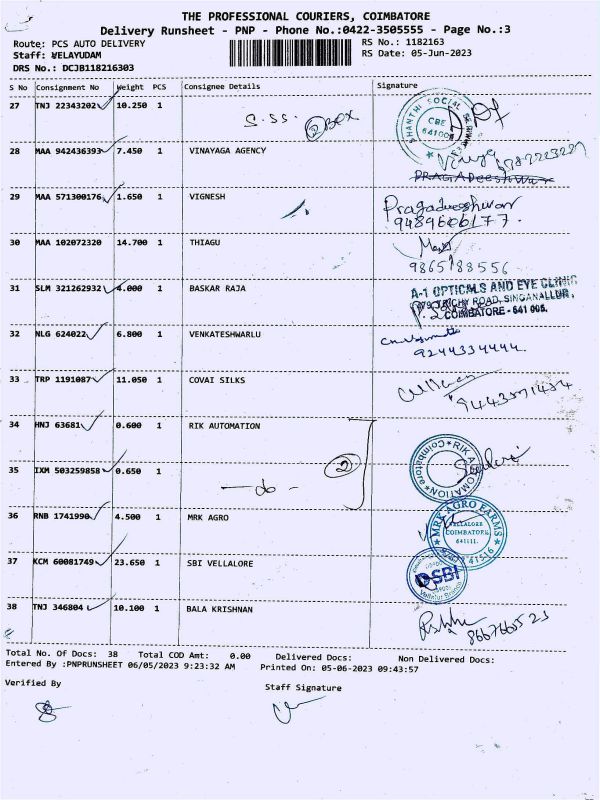 THE PROFESSIONAL COURIERS, COIMBATORE
Delivery Runsheet - PNP - Phone No.:0422-3505555 - Page No.:3
Route: PCS AUTO DELIVERY RS No.: 1182163
Staff: VELAYUDAM RS Date: 05-Jun-2023
DRS No.: DCJB118216303
S No Consignment No Weight PCS Consignee Details Signature
27 TNJ 22343202 10.250 1 S.SS. 2 BOX
SHANTHI SOCIAL CBE 641004
28 MAA 942436393 7.450 1 VINAYAGA AGENCY
29 MAA 571300176 1.650 1 VIGNESH Pragadeeshwar
9489606177.
30 MAA 102072320 14.700 1 THIAGU
9865188556
31 SLM 321262932 4.000 1 BASKAR RAJA A-1 OPTICALS AND EYE CLINIC
TRICHY ROAD, SINGANALLUR,
COIMBATORE - 641 005.
32 NLG 624022 6.800 1 VENKATESHWARLU
9244334444.
33 TRP 1191087 11.050 1 COVAI SILKS
34 HNJ 63681 0.600 1 RIK AUTOMATION
RIK AUTOMATION Coimbatore
35 IXM 503259858 0.650 1 - do - 2
36 RNB 1741990 4.500 1 MRK AGRO
MRK AGRO FARMS
VELLALORE
COIMBATORE
641111.
37 KCM 60081749 23.650 1 SBI VELLALORE SBI
38 TNJ 346804 10.100 1 BALA KRISHNAN
Total No. Of Docs: 38 Total COD Amt: 0.00 Delivered Docs: Non Delivered Docs:
Entered By :PNPRUNSHEET 06/05/2023 9:23:32 AM Printed On: 05-06-2023 09:43:57
Verified By Staff Signature